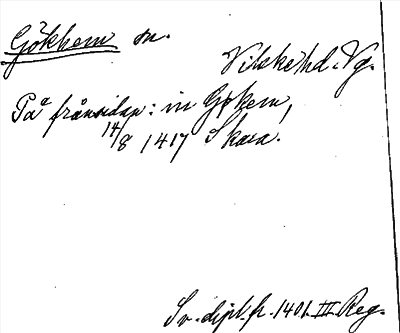 Gökhem sn.
Vilske hd. Vg.
På frånsidan: in Gökem,
14/8 1417 Skara.
Sv. dipl. fr. 1401 III Reg.